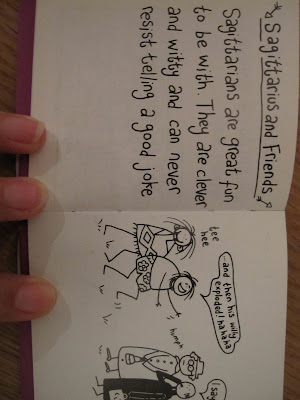 Sagittarius and Friends
Sagittarians are great fun
to be with. They are clever
and witty and can never
resist telling a good joke
tee
hee
...and then his willy
exploded! hahaha
humph
I say